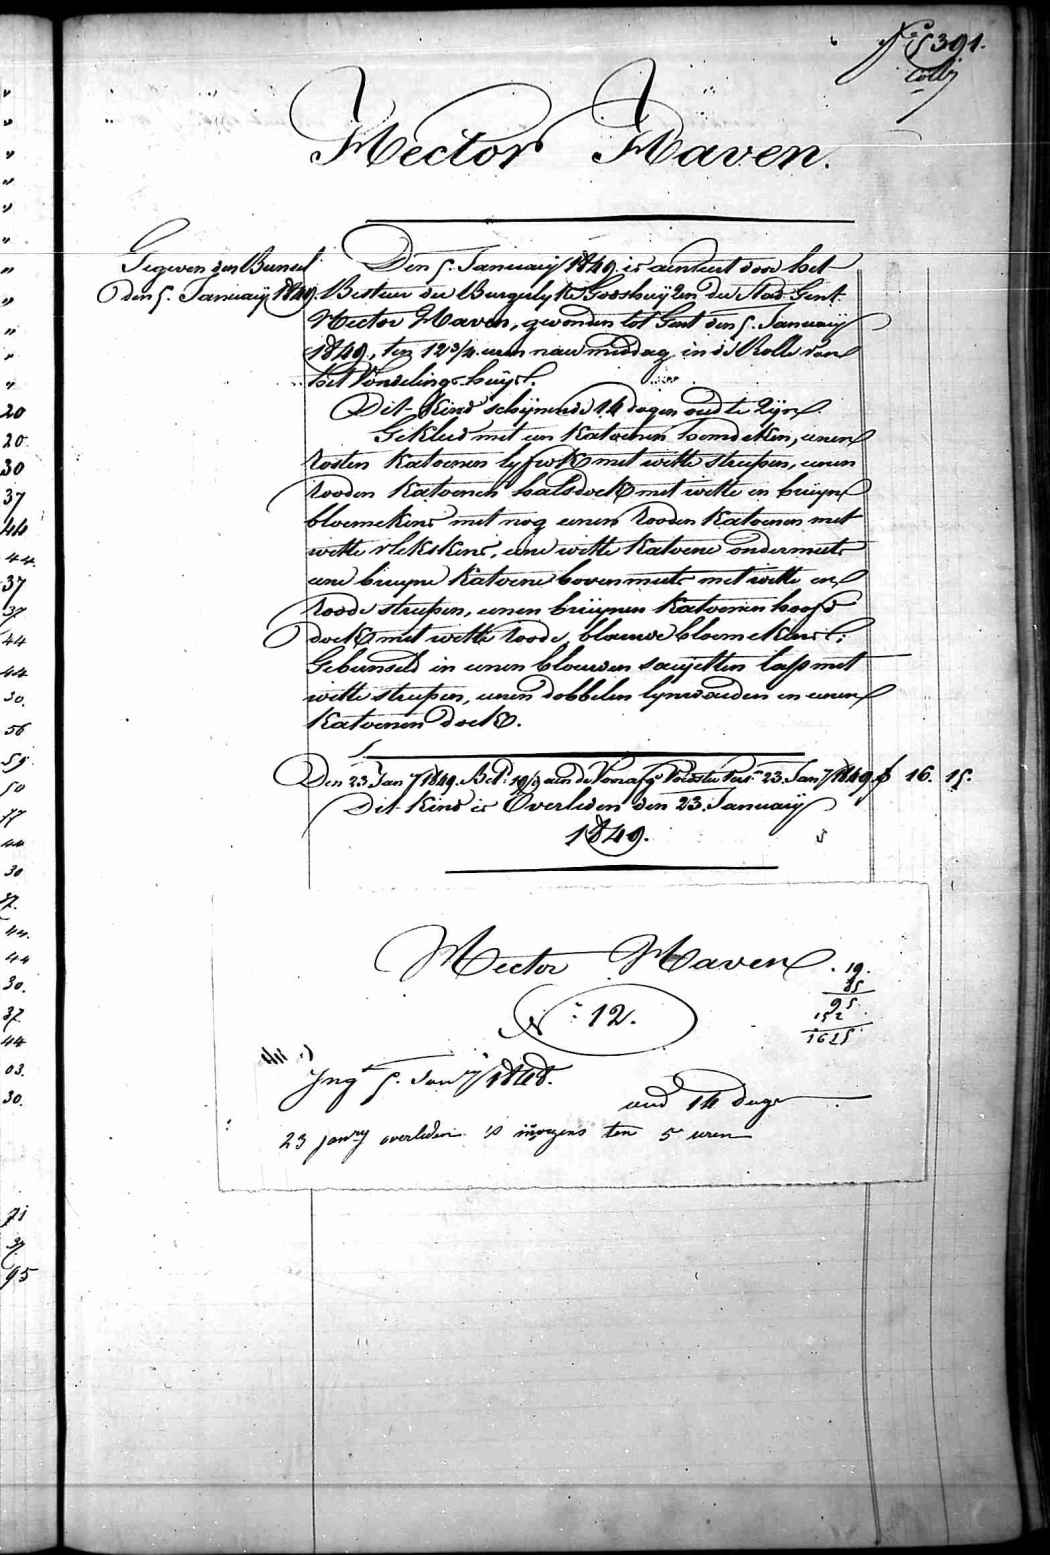 391.
Hector Haven.
Gegeven den Bunsel
den 5. January 1849.
Den 5. January 1849 is aenveert door het
Bestuer der Burgerlyke Godshuyzen der Stad Gent:
Hector Haven, gevonden tot Gent den 5. January
1849, ten 12 3/4 uren naermiddag in de Rolle van
het Vondelings-huys.
Dit Kind schynende 14 dagen oud te zyn.
Gekleed met een Katoenen hemdeken, eenen
rosten Katoenen lyfrok met witte streepen, eenen
rooden Katoenen halsdoek met witte en bruyne
bloemekens met nog eenen rooden Katoenen met
witte vlekskens, eene witte Katoene ondermuts
eene bruyne Katoene bovenmuts met witte en
roode streepen, eenen bruynen Katoenen hoofd
doek met witte roode, blauwe bloemekens:
Gebunseld in eenen blauwen sayetten lap met
witte streepen, eenen dobbelen lynwaeden en eenen
Katoenen doek.
Den 23 Jany 1849. Bet. 19/d aen de Voorafg. 23. Jany 1849. f 16. 15.
Dit Kind is Overleden den 23. January
1849.
Hector Haven.
N: 12.
19.
85
95
152
1615
Ing. 5. Jany 1848.
oud 14 dage
23 janry overleden 's morgens ten 5 uren
20
20
30
37
44
44
37
37
44
44
30.
56
59
50
77
44
30
37.
44.
44
30.
37
44
03.
30.
71
37
95